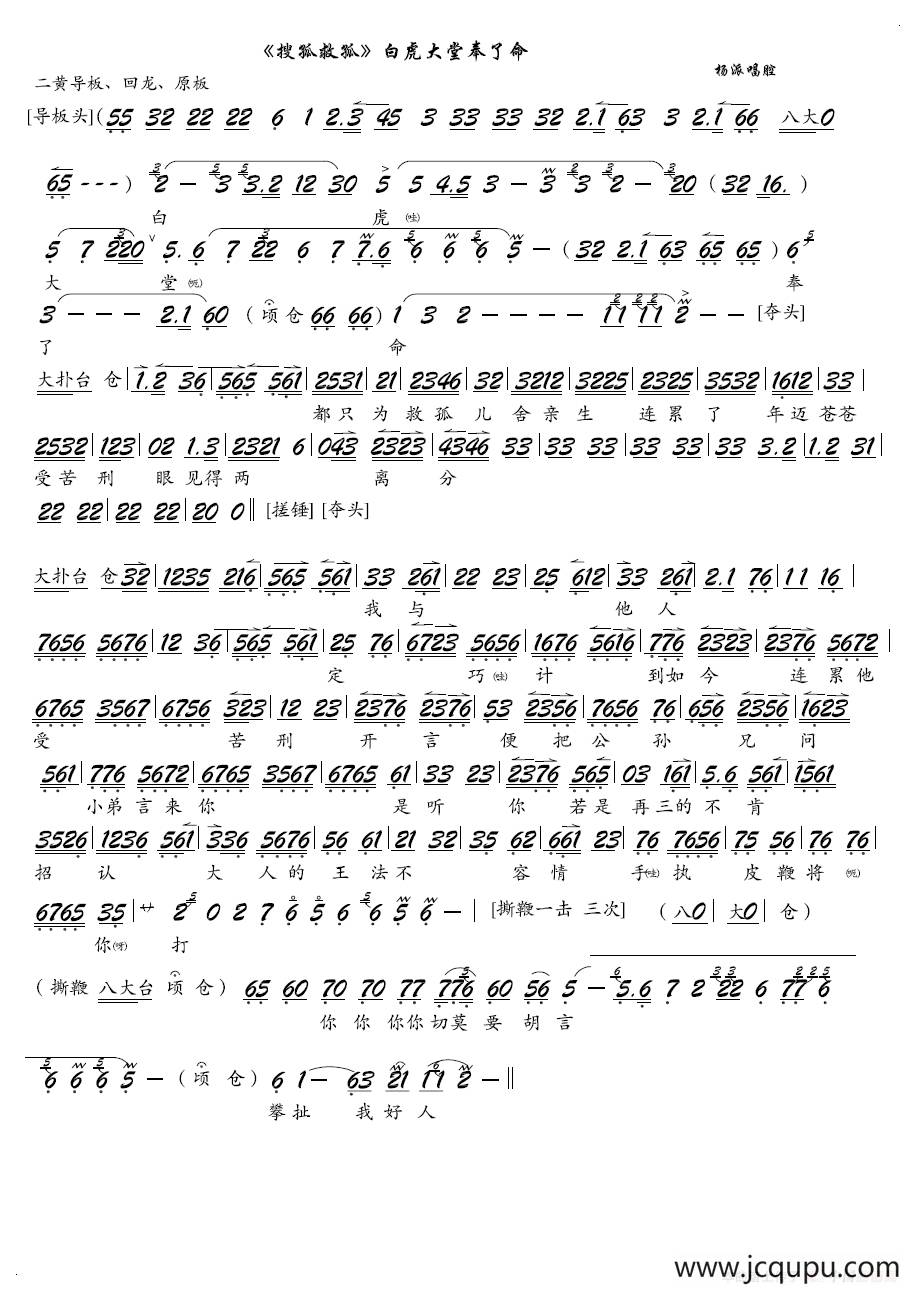 《搜孤救孤》白虎大堂奉了命
杨派唱腔
二黄导板、回龙、原板
[导板头](55 32 22 22 6 1 2.3 45 3 33 33 32 2.1 63 3 2.1 66 八大0
65 - - -) 2 - 3 3.2 12 30 5 5 4.5 3 - 3 3 2 - 20 (32 16.)
白 虎(哇)
5 7 220 5. 6 7 22 6 7 7.6 6 6 6 5 - (32 2.1 63 65 65) 6
大 堂(呃) 奉
3 - - - 2.1 60 (顷仓 66 66) 1 3 2 - - - - 11 11 2 - - [夺头]
了 命
大扑台 仓|1.2 36|565 561|2531|21|2346|32|3212|3225|2325|3532|1612|33|
都只为救孤儿舍亲生 连累了 年迈苍苍
2532|123|02 1.3|2321 6|043 2323|4346 33|33 33|33 33|33 3.2|1.2 31|
受苦刑 眼见得两 离 分
22 22|22 22|20 0‖ [搓锤] [夺头]
大扑台 仓 32|1235 216|565 561|33 261|22 23|25 612|33 261|2.1 76|11 16|
我与 他人
7656 5676|12 36|565 561|25 76|6723 5656|1676 5616|776 2323|2376 5672|
定 巧(哇)计 到如今 连累他
6765 3567|6756 323|12 23|2376 2376|53 2356|7656 76|656 2356|1623
受 苦刑 开言 便把公孙 兄问
561|776 5672|6765 3567|6765 61|33 23|2376 565|03 161|5.6 561|1561
小弟言来你 是听 你 若是再三的不肯
3526|1236 561|336 5676|56 61|21 32|35 62|661 23|76 7656|75 56|76 76|
招认 大人的王法不 容情 手(哇)执 皮鞭将(呃)
6765 35|サ 2 0 2 7 6 5 6 6 5 6 - |[撕鞭一击 三次] (八0|大0|仓)
你(呀) 打
(撕鞭 八大台 顷 仓) 65 60 70 70 77 776 60 56 5 - 5.6 7 2 22 6 77 6
你你你你切莫要胡言
6 6 6 5 - (顷 仓) 6 1 - 63 21 11 2 - ‖
攀扯 我好人
www.jcqupu.com